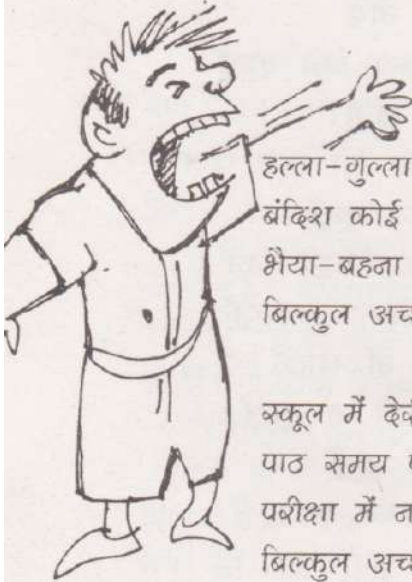 हल्ला-गुल्ला
बंदिश कोई
भैया-बहना
बिल्कुल

स्कूल में
पाठ समय
परीक्षा में
बिल्कुल